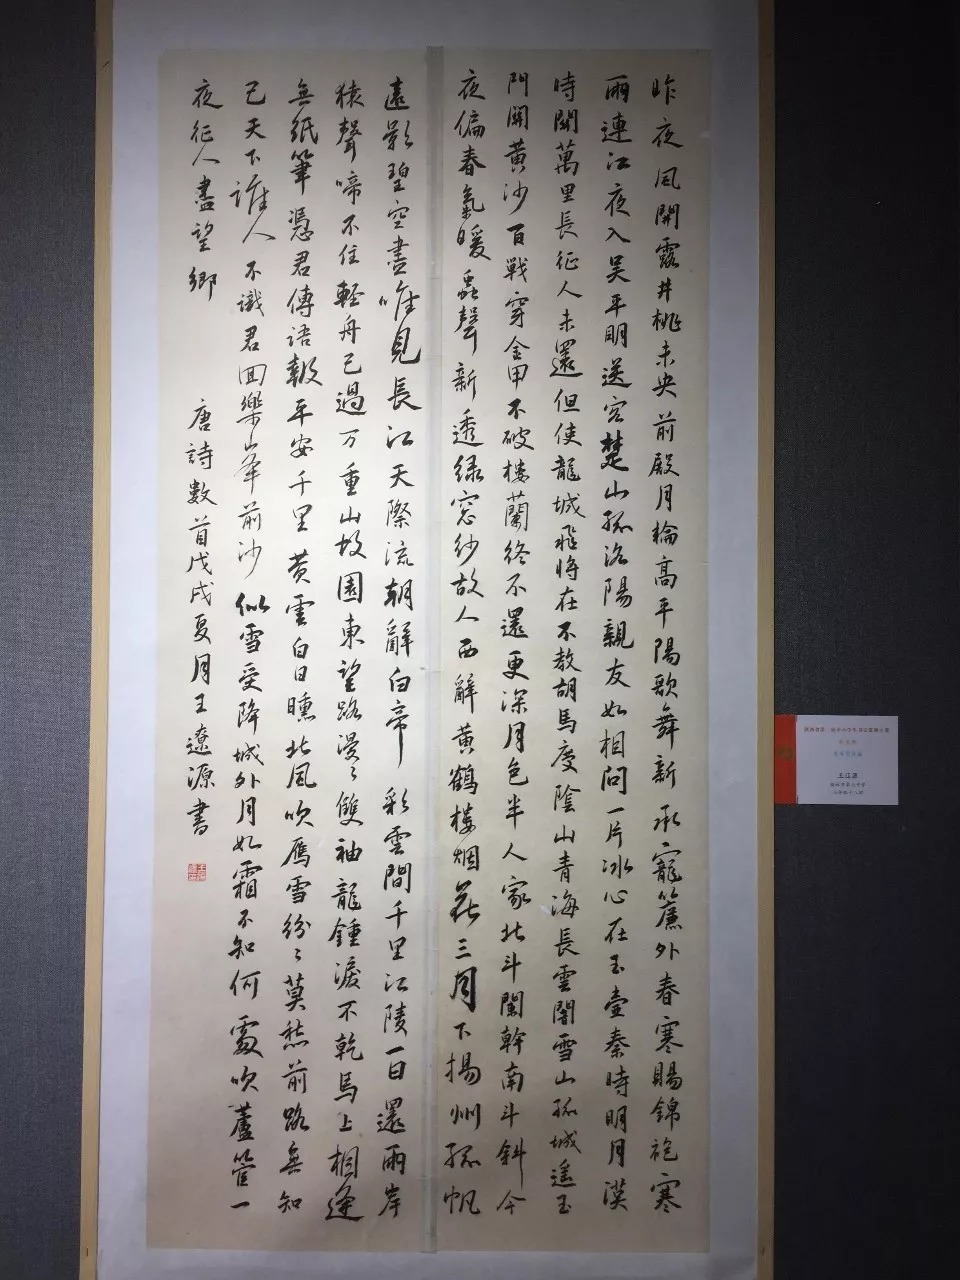 昨夜风開露井桃未央前殿月輪高平陽歌舞新承寵簾外春寒賜錦袍寒
雨連江夜入吴平明送客楚山孤洛陽親友如相問一片冰心在玉壺秦時明月漢
時關萬里長征人未還但使龍城飛将在不教胡馬度陰山青海長雲闇雪山孤城遥玉
門關黄沙百戰穿金甲不破樓蘭終不還更深月色半人家北斗闌幹南斗斜今
夜偏春氣暖蟲聲新透緑窓紗故人西辭黄鶴樓烟花三月下揚州孤帆
遠影碧空盡唯見長江天際流朝辭白帝彩雲間千里江陵一日還兩岸
猿聲啼不住輕舟已過万重山故園東望路漫〻雙袖龍鍾淚不乾馬上相逢
無紙筆憑君傳語報平安千里黄雲白日曛北风吹雁雪紛〻莫愁前路無知
己天下誰人不識君回樂峰前沙似雪受降城外月如霜不知何處吹蘆管一
夜征人盡望鄉
唐詩數首戊戌夏月王遼源書